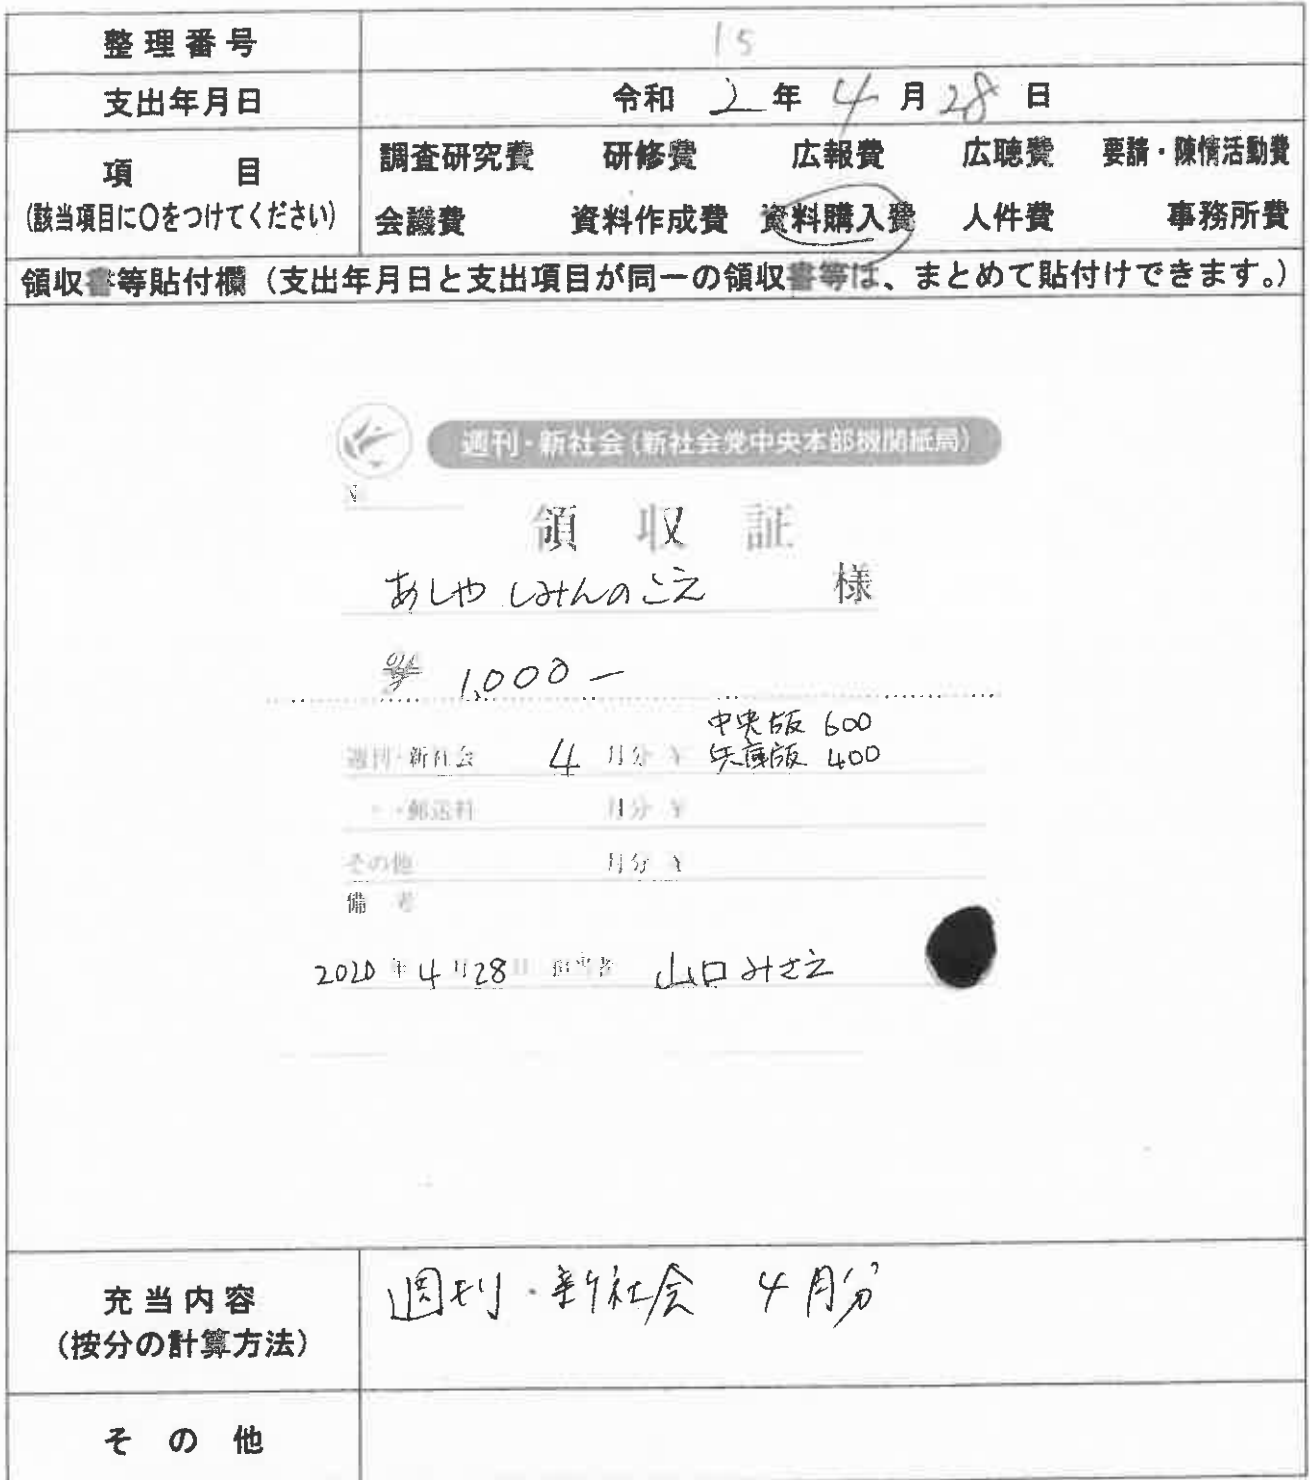 整理番号 15
支出年月日 令和 2 年 4 月 28 日
項目
(該当項目に○をつけてください)
調査研究費 研修費 広報費 広聴費 要請・陳情活動費
会議費 資料作成費 資料購入費 人件費 事務所費
領収書等貼付欄(支出年月日と支出項目が同一の領収書等は、まとめて貼付けできます。)
週刊・新社会(新社会党中央本部機関紙局)
領収証
あしやしみんのこえ 様
¥ 1,000-
中央版 600
週刊・新社会 4 月分 ¥ 兵庫版 400
・郵送料 月分 ¥
その他 月分 ¥
備考
2020 年 4 月 28 日 担当者 山口みさえ
充当内容 週刊・新社会 4月分
(按分の計算方法)
その他